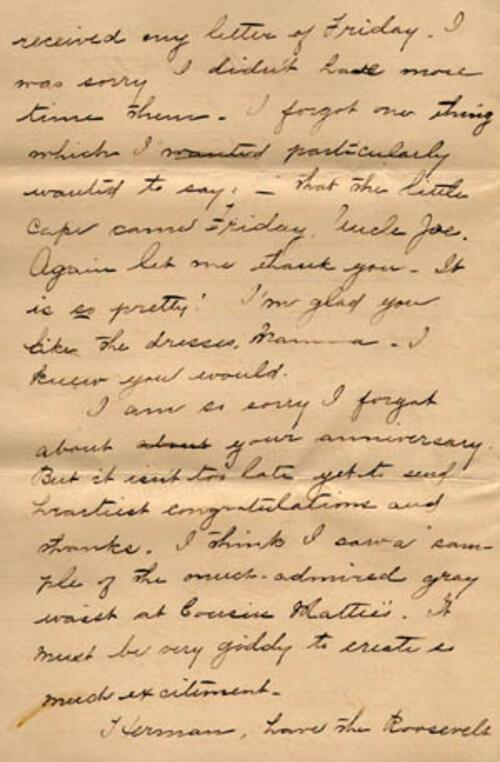 received my letter of Friday. I
was sorry I didn't have more
time then - I forgot one thing
which I wanted particularly
wanted to say: - that the little
cape came Friday, Uncle Joe.
Again let me thank you - It
is so pretty! I'm glad you
like the dresses, Mamma - I
knew you would.
I am so sorry I forgot
about about your anniversary.
But it isn't too late yet to send
heartiest congratulations and
thanks. I think I saw a sam-
ple of the much-admired gray
waist at Cousin Mattie's. It
must be very giddy to create so
much excitement -
Herman, have the Roosevelt